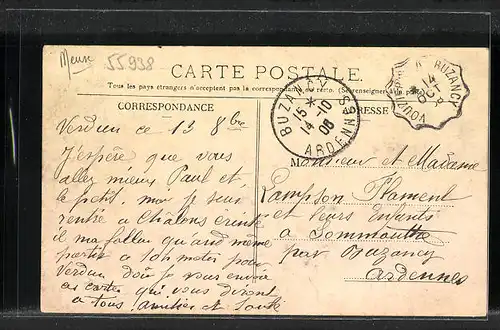 Meuse 55938
CARTE POSTALE
Tous les pays étrangers n'acceptent pas la correspondance au recto. (Se renseigner à la
CORRESPONDANCE
ADRESSE
BUZANCY
15 *
14 -10
08
ARDENNES
BUZANCY
14
OCT
08
VOUZI
Verdun ce 13 8bre
J'espère que vous
allez mieux Paul et
le petit, moi je suis
rentré à Chalons
il ma fallu quand même
partir a
Verdun d'où je vous envoie
ces cartes qui vous diront
a tous amitier et Santé
Monsieur et Madame
Lampson Flament
et leurs Enfants
a Sommauthe
par Buzancy
Ardennes